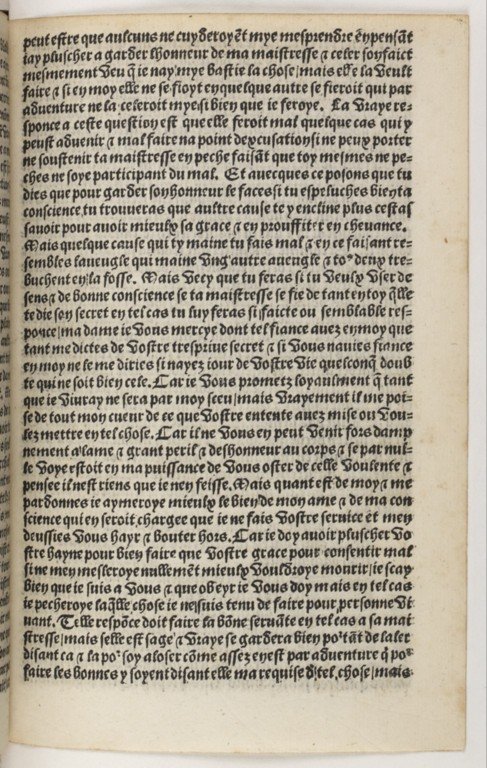 peut estre que aulcuns ne cuyderoyẽt mye mesprendre ẽy pensãt
iay pluscher a garder lhonneur de ma maistresse ⁊ celer soy faict
mesmement veu q̃ ie nay mye bastie la chose/mais elle la veult
faire ⁊ si en moy elle ne se fioyt en quelque autre se fieroit qui par
aduenture ne la celeroit mye si bien que ie feroye. La vraye re-
sponce a ceste question est que elle feroit mal quelque cas qui y
peust aduenir ⁊ mal faire na point dexcusation si ne peux porter
ne soustenir ta maistresse en peche faisãt que toy mesmes ne pe-
ches ne soye participant du mal. Et auecques ce posons que tu
dies que pour garder son honneur le faces si tu espluches bien ta
conscience tu trouueras que aultre cause te y encline plus cest as
sauoir pour auoir mieulx sa grace ⁊ en prouffiter en cheuance.
Mais quelque cause qui ty maine tu fais mal ⁊ en ce faisant re-
sembles laueugle qui maine vng autre aueugle ⁊ toꝰ deux tre-
buchent en la fosse. Mais vecy que tu feras si tu veulx vser de
sens ⁊ de bonne conscience se ta maistresse se fie de tant en toy q̃lle
te die son secret en tel cas tu luy feras si faicte ou semblable res-
ponce/ma dame ie vous mercye dont tel fiance auez en moy que
tant me dictes de vostre tresprive secret ⁊ si vous nauies fiance
en moy ne le me diries si nayez iour de vostre vie quelconq̃ doub
te qui ne soit bien cele. Car ie vous prometz loyaulment q̃ tant
que ie viuray ne sera par moy sceu/mais vrayement il me poi-
se de tout mon cueur de ce que vostre entente auez mise ou vou-
lez mettre en tel chose. Car il ne vous en peut venir fors damp
nement a lame ⁊ grant peril ⁊ deshonneur au corps ⁊ se par nul-
le voye estoit en ma puissance de vous oster de celle voulente ⁊
pensee il nest riens que ie neu feisse. Mais quant est de moy ⁊ me
pardonnes ie aymeroye mieulx le bien de mon ame ⁊ de ma con
science qui en seroit chargee que ie ne fais vostre seruice et men
deussies vous hayr ⁊ bouter hors. Car ie doy auoir pluscher vo
stre hayne pour bien faire que vostre grace pour consentir mal
si ne men mesleroye nullemẽt mieulx vouldroye mourir/ie scay
bien que ie suis a vous ⁊ que obeyr ie vous doy mais en tel cas
ie pecheroye laq̃lle chose ie ne suis tenu de faire pour personne vi
uant. Telle respõce doit faire la bõne seruãte en tel cas a sa mai
stresse/mais selle est sage ⁊ vraye se gardera bien poꝛ tãt de laler
disant ca ⁊ la poꝛ soy aloser cõme assez en est par aduenture q̃ poꝛ
faire les bonnes y soyent disant elle ma requise d̃ tel chose/mais